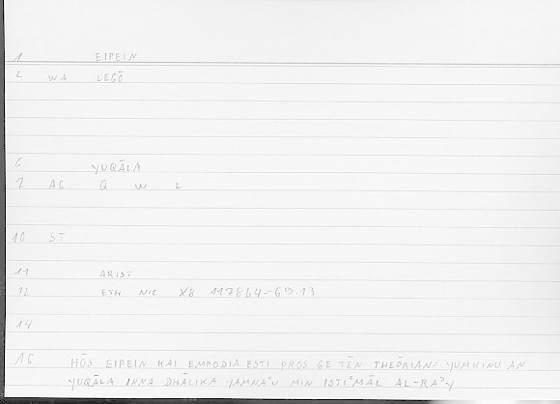 1 EIPEIN
2 WA LEGŌ
6 YUQĀLA
7 AC Q W L
10 ST
11 ARIST
12 ETH NIC X8 1178b4-69.13
14
16 HŌS EIPEIN KAI EMPODIA ESTI PROS GE TĒN THEŌRIAN: YUMKINU AN
YUQĀLA INNA DHĀLIKA YAMNAʿU MIN ISTIʿMĀL AL-RAʾY